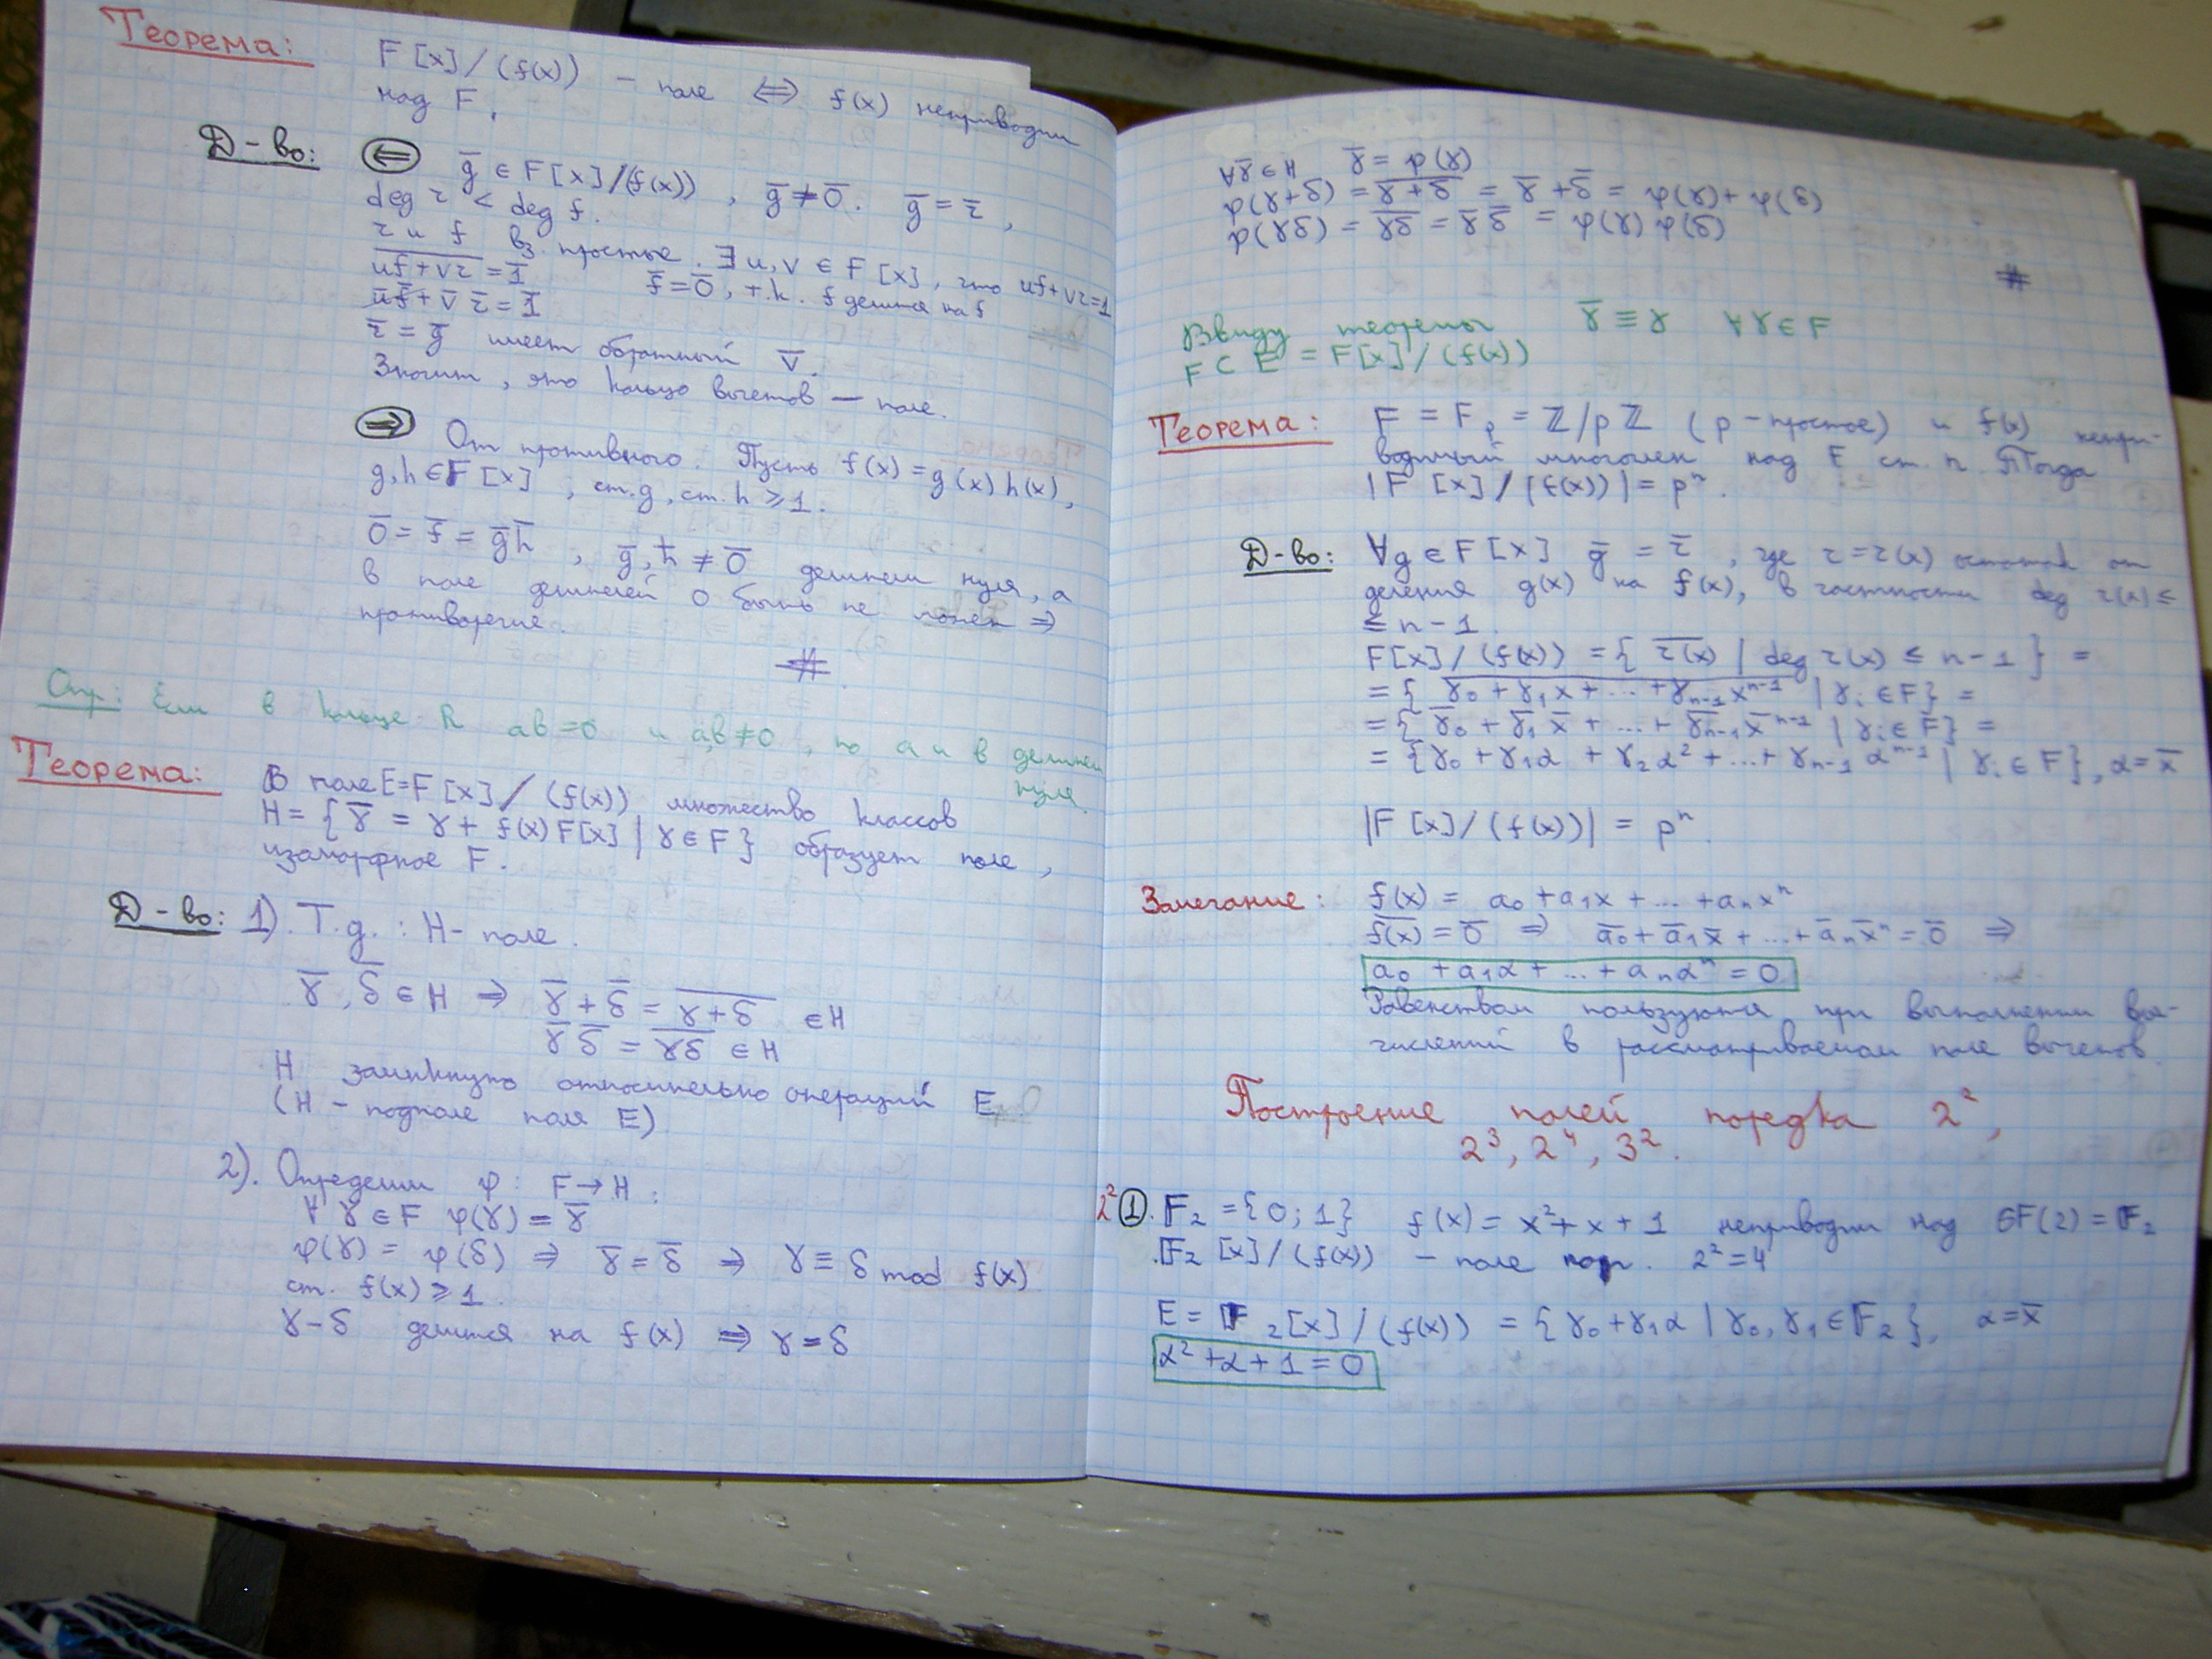 Теорема: F[x]/(f(x)) – поле ⟺ f(x) неприводим
над F.
Д-во: ⇐ g̅ ∈ F[x]/(f(x)), g̅ ≠ 0̅. g̅ = r̅,
deg r < deg f.
r и f вз. простые. ∃ u, v ∈ F[x], что uf+vr=1
u̅f̅+̅v̅r̅ = 1̅ f̅ = 0̅, т.к. f делится на f
u̅f̅ + v̅ r̅ = 1̅
r̅ = g̅ имеет обратный v̅.
Значит, это кольцо вычетов — поле.
⇒ От противного. Пусть f(x) = g(x)h(x),
g, h ∈ F[x], ст. g, ст. h ≥ 1.
0̅ = f̅ = g̅h̅, g̅, h̅ ≠ 0̅ делители нуля, а
в поле делителей 0 быть не может ⇒
противоречие.
#
Опр: Если в кольце R ab=0 и a,b≠0, то a и b делители
нуля.
Теорема: В поле E=F[x]/(f(x)) множество классов
H = {γ̅ = γ + f(x)F[x] | γ ∈ F} образует поле,
изоморфное F.
Д-во: 1). Т.д.: H – поле.
γ̅, δ̅ ∈ H ⇒ γ̅ + δ̅ = γ̅+̅δ̅ ∈ H
γ̅ δ̅ = γ̅δ̅ ∈ H
H замкнуто относительно операций E
(H – подполе поля E)
2). Определим φ: F→H:
∀ γ ∈ F φ(γ) = γ̅
φ(γ) = φ(δ) ⇒ γ̅ = δ̅ ⇒ γ ≡ δ mod f(x)
ст. f(x) ≥ 1.
γ–δ делится на f(x) ⇒ γ = δ
∀γ̅ ∈ H γ̅ = φ(γ)
φ(γ+δ) = γ̅+̅δ̅ = γ̅ + δ̅ = φ(γ) + φ(δ)
φ(γδ) = γ̅δ̅ = γ̅ δ̅ = φ(γ) φ(δ)
#
Ввиду теоремы γ̅ ≡ γ ∀γ∈F
F ⊂ E = F[x]/(f(x))
Теорема: F = F_p = ℤ/pℤ (p – простое) и f(x) непри-
водимый многочлен над F ст. n. Тогда
|F[x]/(f(x))| = pⁿ.
Д-во: ∀g ∈ F[x] g̅ = r̅, где r = r(x) остаток от
деления g(x) на f(x), в частности deg r(x) ≤
≤ n–1.
F[x]/(f(x)) = { r̅(̅x̅)̅ | deg r(x) ≤ n–1 } =
= { γ₀ + γ₁x + ... + γₙ₋₁xⁿ⁻¹ | γᵢ ∈ F} =
= { γ̅₀ + γ̅₁ x̅ + ... + γ̅ₙ₋₁x̅ⁿ⁻¹ | γᵢ ∈ F} =
= {γ₀ + γ₁α + γ₂α² + ... + γₙ₋₁ αⁿ⁻¹ | γᵢ ∈ F}, α = x̅
|F[x]/(f(x))| = pⁿ.
Замечание: f(x) = a₀ + a₁x + ... + aₙxⁿ
f̅(̅x̅)̅ = 0̅ ⇒ a̅₀ + a̅₁x̅ + ... + a̅ₙx̅ⁿ = 0̅ ⇒
a₀ + a₁α + ... + aₙαⁿ = 0
Равенством пользуются при выполнении вы-
числений в рассматриваемом поле вычетов.
Построение полей порядка 2²,
2³, 2⁴, 3².
2² ①. F₂ = {0; 1} f(x) = x²+x+1 неприводим над GF(2) = F₂
F₂[x]/(f(x)) – поле пор. 2²=4
E = F₂[x]/(f(x)) = {γ₀+γ₁α | γ₀, γ₁ ∈ F₂}, α = x̅
α²+α+1=0